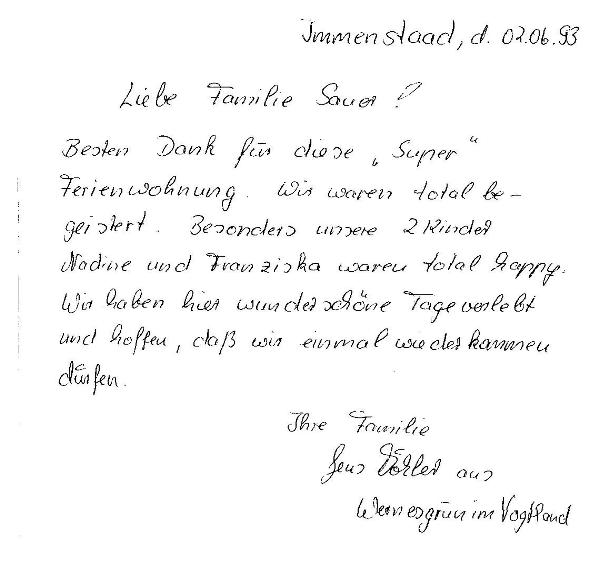 Immenstaad, d. 02.06.93
Liebe Familie Sauer!
Besten Dank für diese „Super“
Ferienwohnung. Wir waren total be-
geistert. Besonders unsere 2 Kinder
Nadine und Franziska waren total happy.
Wir haben hier wunderschöne Tage verlebt
und hoffen, daß wir einmal wiederkommen
dürfen.
Ihre Familie
Jens aus
Wernesgrün im Vogtland